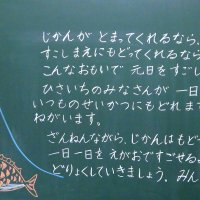 じかんが とまってくれるなら、
すこしまえにもどってくれるなら
こんなおもいで 元日をすごし
ひさいちのみなさんが 一日
いつものせいかつにもどれま
ねがいます。
ざんねんながら、じかんはもど
一日一日を えがおですごせる。
どりょくしていきましょう。みん